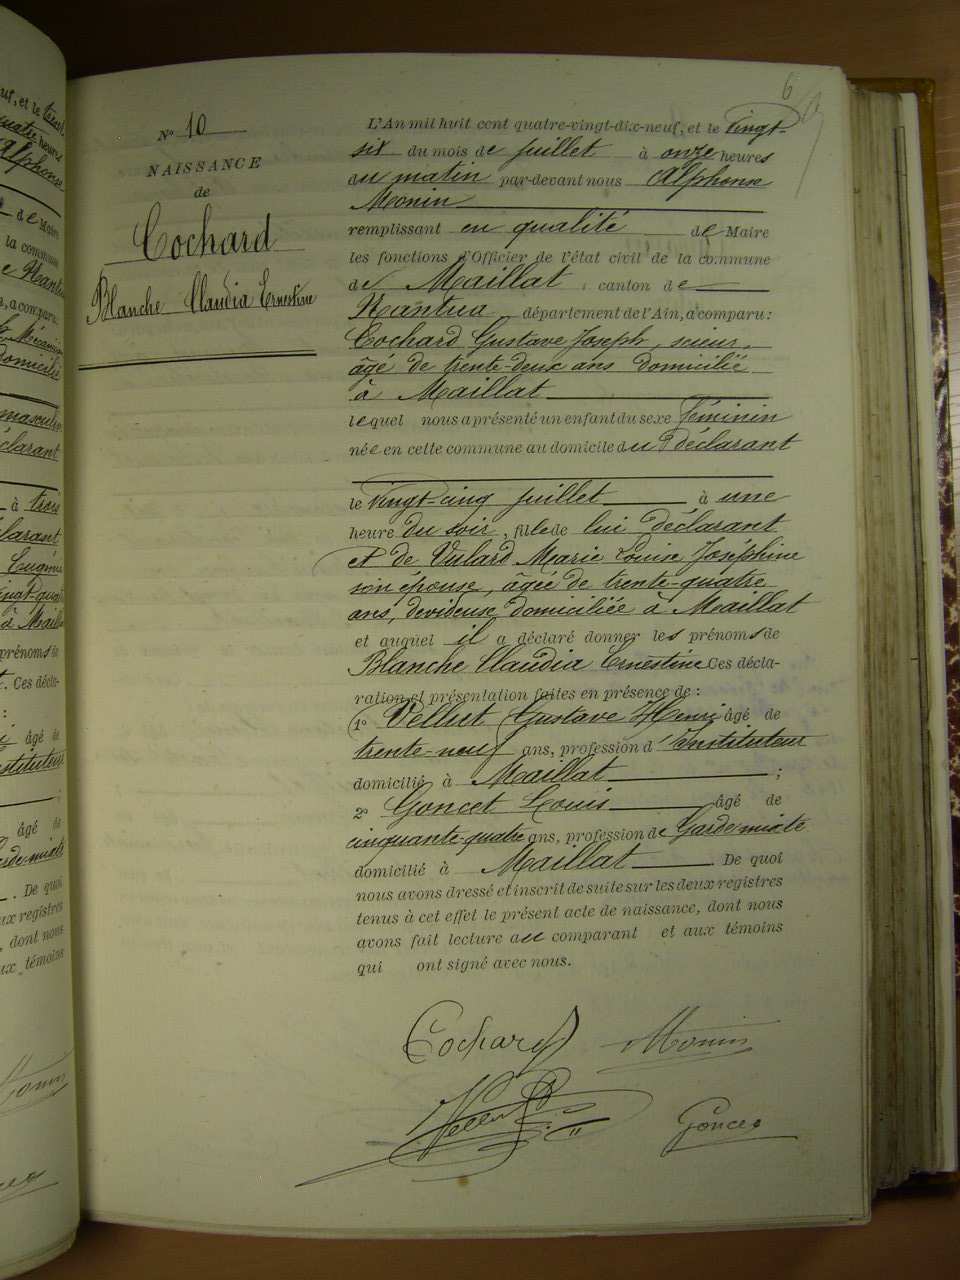 6
N° 10
NAISSANCE
de
Cochard
Blanche Claudia Ernestine
L'An mil huit cent quatre-vingt-dix-neuf, et le vingt-
six du mois de juillet à onze heures
du matin par-devant nous Alphonse
Monin
remplissant en qualité de Maire
les fonctions d'Officier de l'état civil de la commune
de Maillat, canton de
Nantua, département de l'Ain, a comparu:
Cochard Gustave Joseph, scieur,
âgé de trente-deux ans domicilié
à Maillat
lequel nous a présenté un enfant du sexe féminin
née en cette commune au domicile du déclarant
le vingt-cinq juillet à une
heure du soir, fille de lui déclarant
et de Vulard Marie Louise Joséphine
son épouse, âgée de trente-quatre
ans, deviseuse domiciliée à Maillat
et auquel il a déclaré donner les prénoms de
Blanche Claudia Ernestine Ces décla-
ration et présentation faites en présence de:
1° Vellut Gustave Henri âgé de
trente-neuf ans, profession d'Instituteur
domicilié à Maillat;
2° Goncet Louis âgé de
cinquante-quatre ans, profession de Garde-mixte
domicilié à Maillat. De quoi
nous avons dressé et inscrit de suite sur les deux registres
tenus à cet effet le présent acte de naissance, dont nous
avons fait lecture au comparant et aux témoins
qui ont signé avec nous.
Cochard Monin
Vellut Goncet